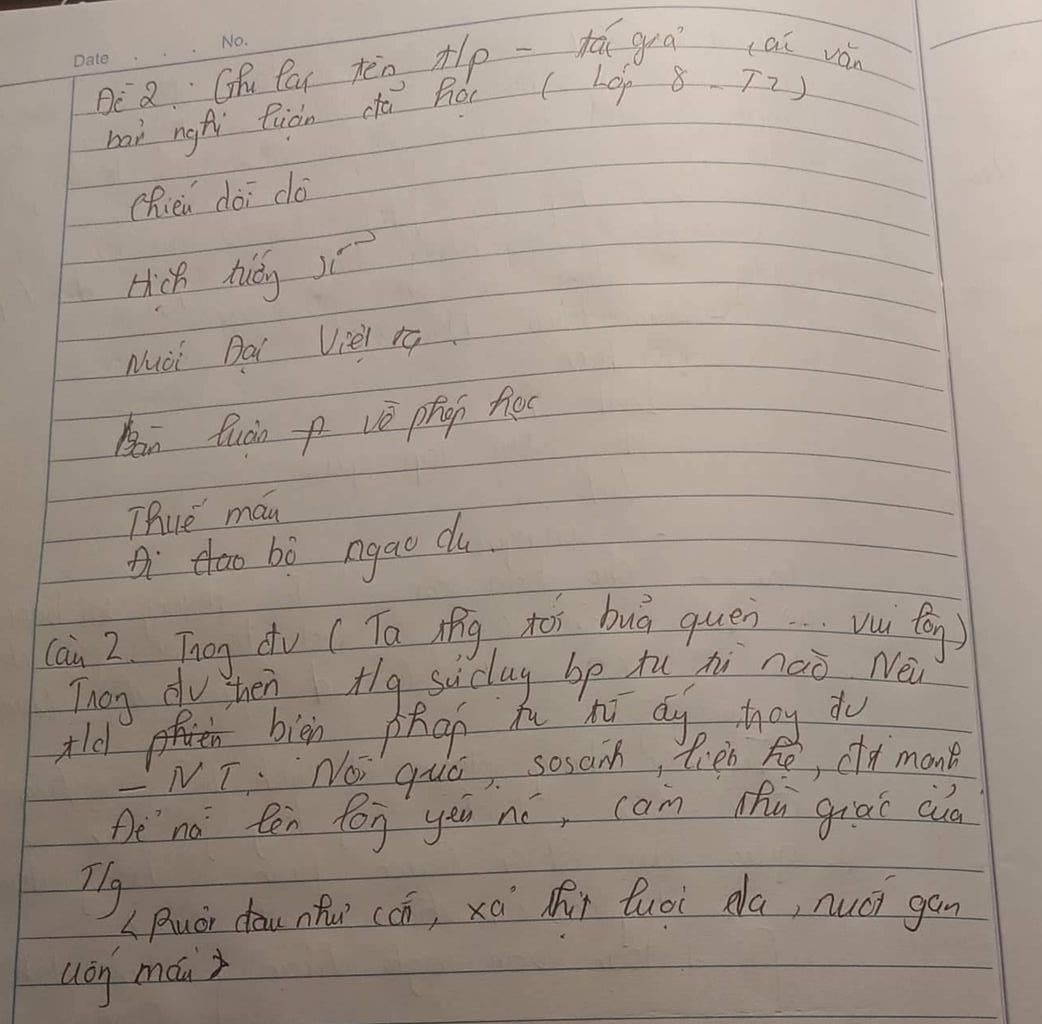 Date . . . No.
Đề 2 : Ghi lại tên t/p - tác giả các văn
bản nghị luận đã học ( Lớp 8 - T2 )
Chiếu dời đô
Hịch tướng sĩ
Nước Đại Việt ta .
Bàn luận về phép học
Thuế máu
Đi dao bộ ngao du .
Câu 2. Trong đv ( Ta thg tới bữa quên ... vui lòng )
Trong đv trên t/g sử dụng bp tu từ nào Nêu
t/d biện pháp tu từ ấy trong đv
- NT : Nói quá, so sánh, liệt kê, đt mạnh
Để nói lên lòng yêu nc, căm thù giặc của
T/g
< Ruột đau như cắt, xả thịt luội da, nuốt gan
uống máu >